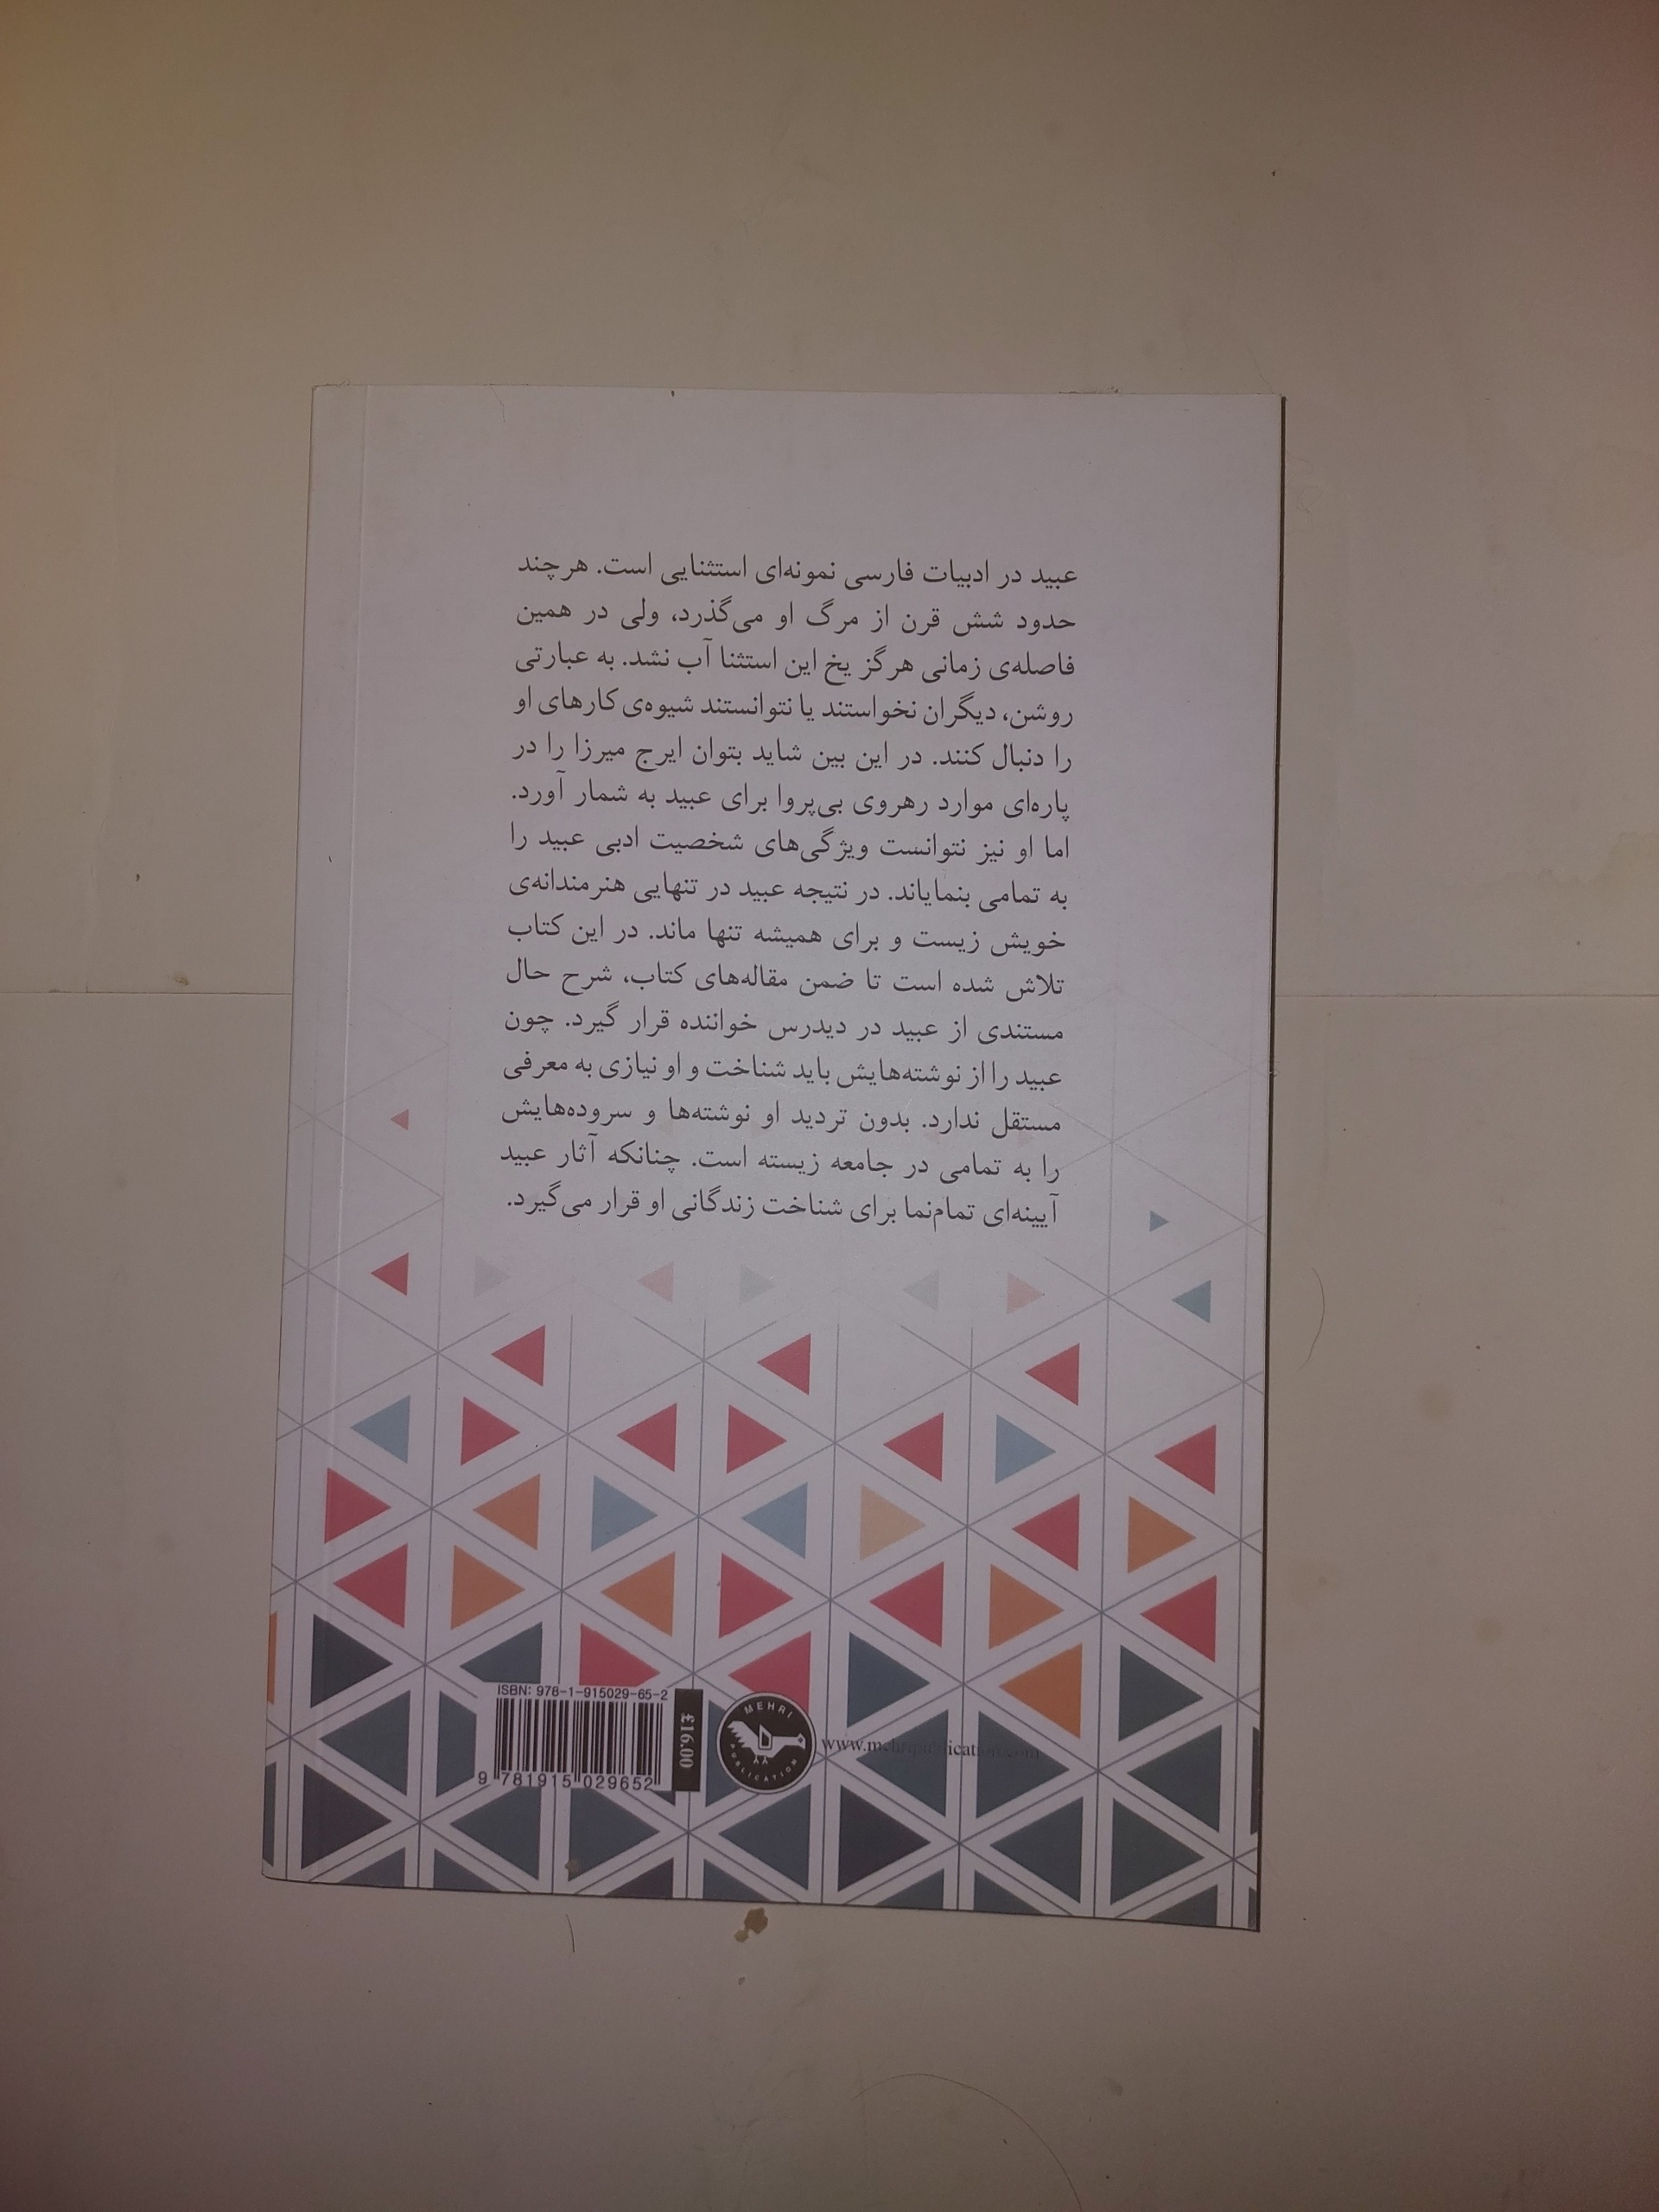 عبید در ادبیات فارسی نمونه‌ای استثنایی است. هرچند
حدود شش قرن از مرگ او می‌گذرد، ولی در همین
فاصله‌ی زمانی هرگز یخ این استثنا آب نشد. به عبارتی
روشن، دیگران نخواستند یا نتوانستند شیوه‌ی کارهای او
را دنبال کنند. در این بین شاید بتوان ایرج میرزا را در
پاره‌ای موارد رهروی بی‌پروا برای عبید به شمار آورد.
اما او نیز نتوانست ویژگی‌های شخصیت ادبی عبید را
به تمامی بنمایاند. در نتیجه عبید در تنهایی هنرمندانه‌ی
خویش زیست و برای همیشه تنها ماند. در این کتاب
تلاش شده است تا ضمن مقاله‌های کتاب، شرح حال
مستندی از عبید در دیدرس خواننده قرار گیرد. چون
عبید را از نوشته‌هایش باید شناخت و او نیازی به معرفی
مستقل ندارد. بدون تردید او نوشته‌ها و سروده‌هایش
را به تمامی در جامعه زیسته است. چنانکه آثار عبید
آیینه‌ای تمام‌نما برای شناخت زندگانی او قرار می‌گیرد.
ISBN: 978-1-915029-65-2
9 781915 029652
£16.00
MEHRI
PUBLICATION
www.mehripublication.com